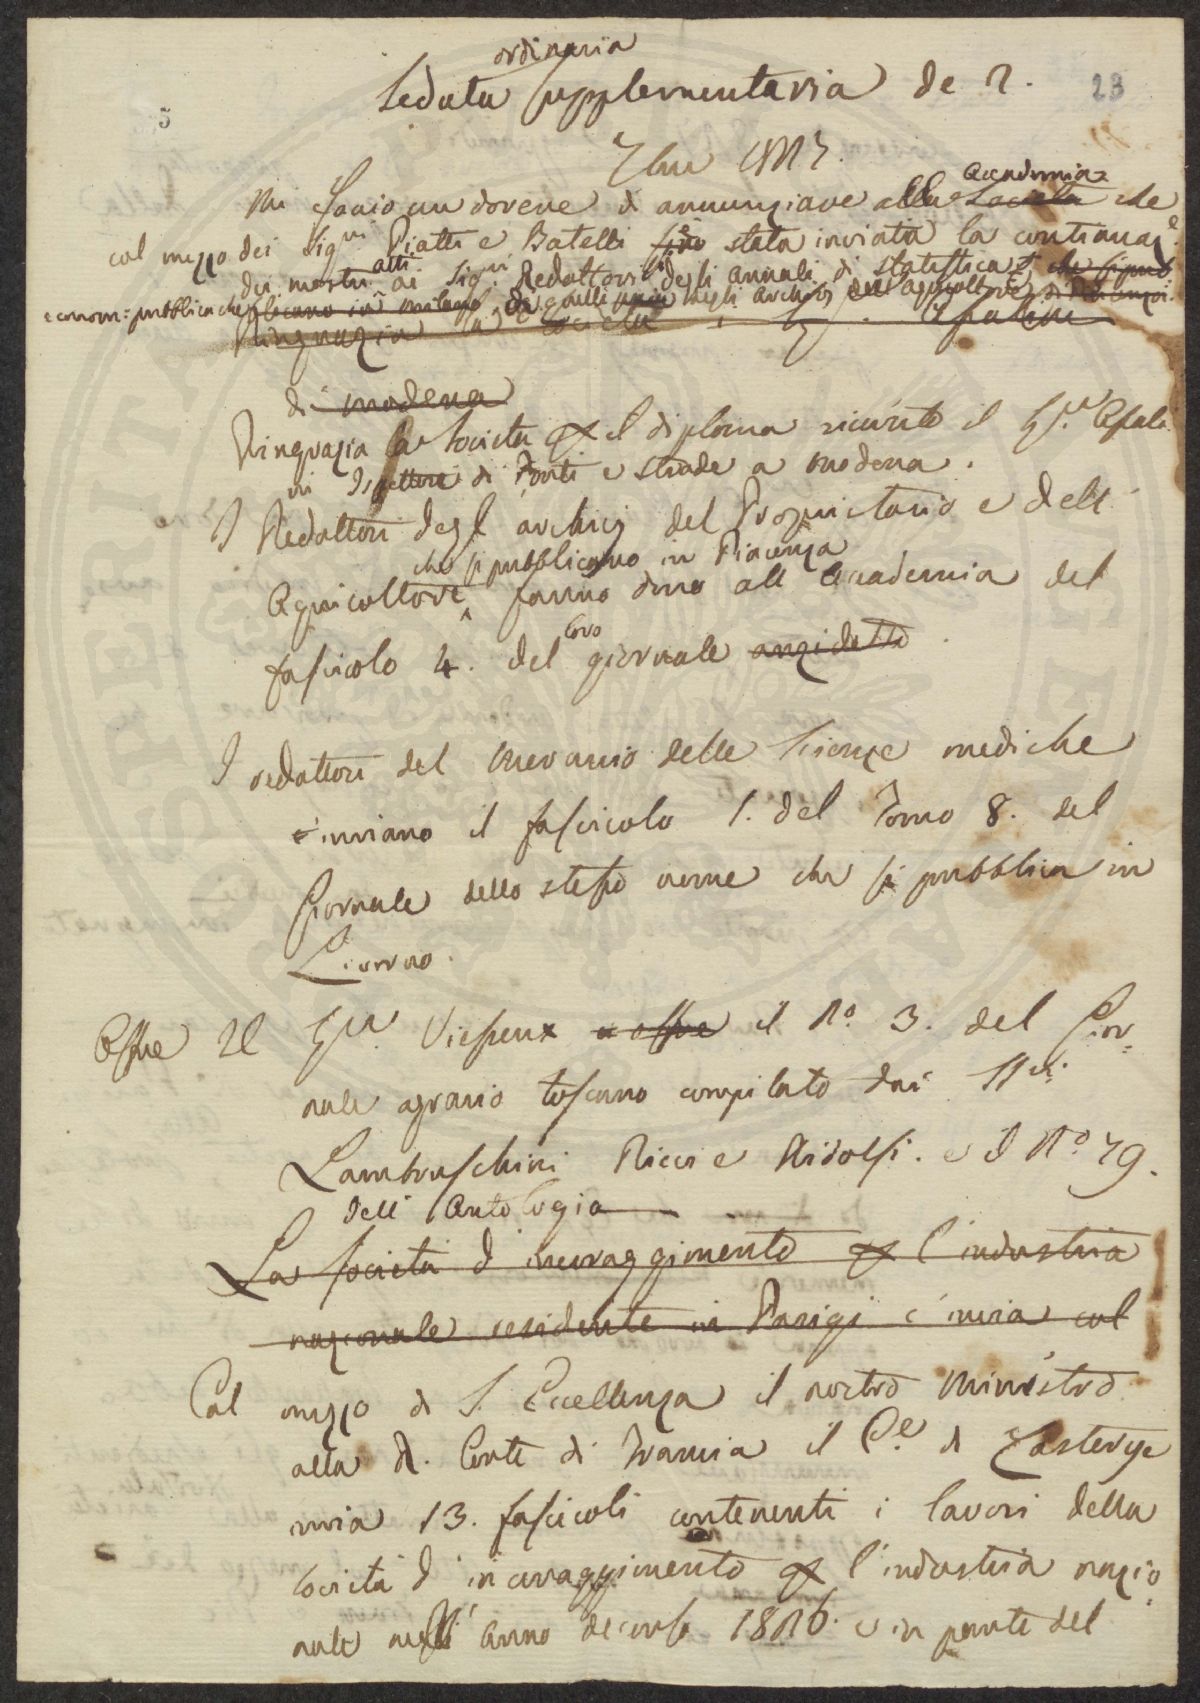 ordinaria
Seduta supplementaria de 2.
23
5
7bre 1827.
Accademia
Mi faccio un dovere di annunziare alla Società che
col mezzo dei Sigri Piatti e Batelli stata inviata la continuaze
dei nostri atti ai Sigri Redattori degli annali di statistica
econom: pubblica che negli archivj
Ringrazia la Società
di Modena
Ringrazia la Società per il diploma ricevuto il Sigr Asca
ni Ispettore di Ponti e strade a Modena.
I Redattori degl archivj del Proprietario e dell'
che si pubblicano in Piacenza
Agricoltore fanno dono all Accademia del
loro
fascicolo 4. del giornale anzidetto
I redattori del Mercurio delle Scienze mediche
c'inviano il fascicolo 1. del Tomo 8. del
Giornale dello stesso nome che si pubblica in
Livorno.
Offre Il Sigr Viesseux offre il No. 3. del Gior=
nale agrario toscano compilato dai SSri.
Lambruschini Ricci e Ridolfi. e il No 79.
dell' Antologia
La Società d' incoraggimento per l'industria
nazionale residente in Parigi c' invia col
Col mezzo di S. Eccellenza il nostro Ministro
alla R. Corte di Francia il Ce di Lasterye
invia 13. fascicoli contenenti i lavori della
Società d' incoraggimento per l'industria nazio
nale nell' anno decorso 1826. e in parte del